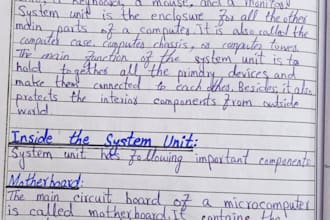 a keyboard, a mouse, and a monitor.
System unit is the enclosure for all the other
main parts of a computer. It is also called the
computer case, computer chassis, or computer tower.
The main function of the system unit is to
hold together all the primary devices and
make them connected to each other. Besides, it also
protects the interior components from outside
world.
Inside the System Unit:
System unit has following important components
Motherboard:
The main circuit board of a microcomputer
is called motherboard. It contains the